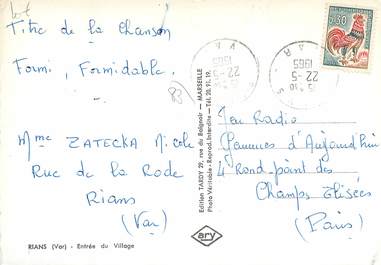 Titre de la Chanson
Formi, Formidable.
Mme ZATECKA Nicole
Rue de la Rode
Rians
(Var)
RIANS (Var) - Entrée du Village
Edition TARDY 29, rue du Baignoir - MARSEILLE
Photo Véritable - Reprod. Interdite - Tél. 20.91.19.
ary
VAR
22-5
1965
0,30
Jeu Radio
Femmes d'Aujourd'hui
4 Rond point des
Champs Elisées
(Paris)
83